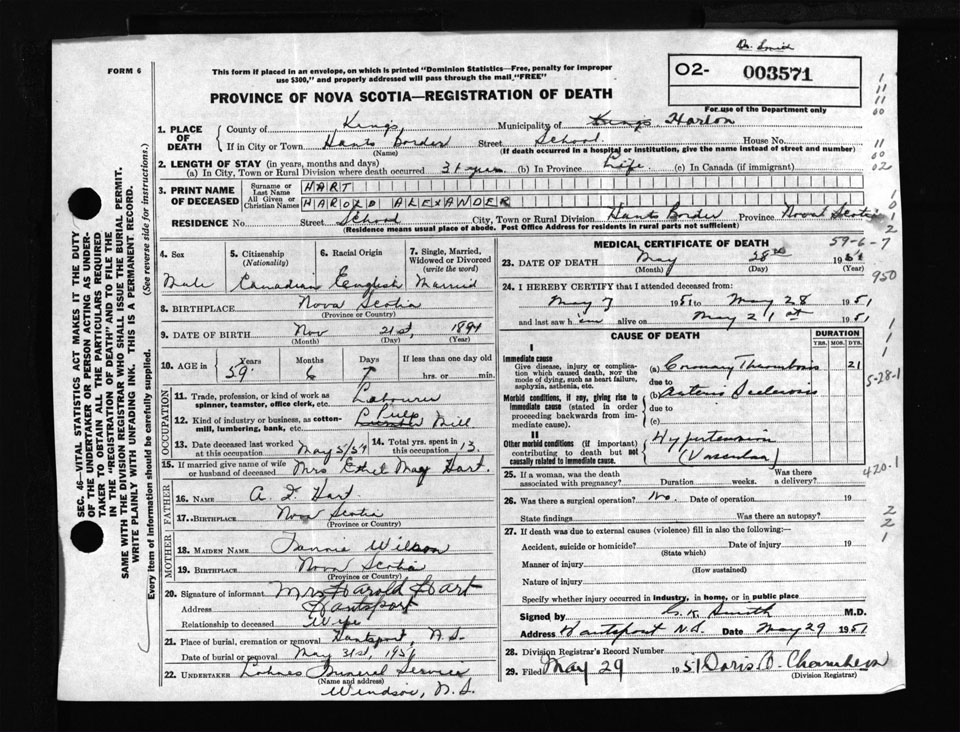 Dr. Smith
FORM 6
This form if placed in an envelope, on which is printed "Dominion Statistics—Free, penalty for improper
use $300," and properly addressed will pass through the mail "FREE"
O2- 003571
For use of the Department only
PROVINCE OF NOVA SCOTIA—REGISTRATION OF DEATH
1. PLACE OF DEATH
County of Kings Municipality of Kings
If in City or Town Hants Border Street School House No.
(Name) (If death occurred in a hospital or institution, give the name instead of street and number)
2. LENGTH OF STAY (in years, months and days)
(a) In City, Town or Rural Division where death occurred 31 yrs. (b) In Province Life. (c) In Canada (if immigrant)
3. PRINT NAME OF DECEASED
Surname or Last Name HART
All Given or Christian Names HAROLD ALEXANDER
RESIDENCE No. Street School City, Town or Rural Division Hants Border Province Nova Scotia
(Residence means usual place of abode. Post Office Address for residents in rural parts not sufficient)
4. Sex
Male
5. Citizenship
(Nationality)
Canadian
6. Racial Origin
English
7. Single, Married,
Widowed or Divorced
(write the word)
Married
8. BIRTHPLACE Nova Scotia
(Province or Country)
9. DATE OF BIRTH Nov 21st, 1894
(Month) (Day) (Year)
10. AGE in Years Months Days If less than one day old
59 6 7 hrs. or min.
OCCUPATION
11. Trade, profession, or kind of work as
spinner, teamster, office clerk, etc. Labourer
12. Kind of industry or business, as cotton-
mill, lumbering, bank, etc. Pulp Mill
13. Date deceased last worked
at this occupation May 5/54
14. Total yrs. spent in
this occupation 13.
15. If married give name of wife
or husband of deceased Mrs Ethel May Hart.
FATHER
16. NAME A. D. Hart
17. BIRTHPLACE Nova Scotia
(Province or Country)
MOTHER
18. MAIDEN NAME Fannie Wilson
19. BIRTHPLACE Nova Scotia
(Province or Country)
20. Signature of informant Mrs Harold Hart
Address Hantsport
Relationship to deceased Wife
21. Place of burial, cremation or removal Hantsport, N.S.
Date of burial or removal May 31st, 1951
22. UNDERTAKER Funeral Service
(Name and address)
Windsor, N.S.
MEDICAL CERTIFICATE OF DEATH
59-6-7
23. DATE OF DEATH May 28th 195
(Month) (Day) (Year)
950
24. I HEREBY CERTIFY that I attended deceased from:
May 7 1951 to May 28 1951
and last saw him alive on May 21st 1951
CAUSE OF DEATH
DURATION
YRS. MOS. DYS.
I
Immediate cause
Give disease, injury or complica-
tion which caused death, NOT the
mode of dying, such as heart failure,
asphyxia, asthenia, etc.
(a) Coronary Thrombosis 21
due to
Morbid conditions, if any, giving rise to
immediate cause (stated in order
proceeding backwards from im-
mediate cause).
(b) Arterio Sclerosis
due to
(c)
5-28-1
II
Other morbid conditions (if important)
contributing to death but not
causally related to immediate cause.
Hypertension
(Vascular)
420-1
25. If a woman, was the death
associated with pregnancy? Duration weeks. Was there
a delivery?
26. Was there a surgical operation? No. Date of operation 19
State findings Was there an autopsy?
27. If death was due to external causes (violence) fill in also the following:—
Accident, suicide or homicide? Date of injury 19
(State which)
Manner of injury
(How sustained)
Nature of injury
Specify whether injury occurred in industry, in home, or in public place
Signed by G. K. Smith M.D.
Address Hantsport N.S. Date May 29 1951
28. Division Registrar's Record Number
29. Filed May 29 1951 Doris B.
(Division Registrar)
SEC. 46—VITAL STATISTICS ACT MAKES IT THE DUTY
OF THE UNDERTAKER OR PERSON ACTING AS UNDER-
TAKER TO OBTAIN ALL THE PARTICULARS REQUIRED
IN THE "REGISTRATION OF DEATH" AND TO FILE THE
SAME WITH THE DIVISION REGISTRAR WHO SHALL ISSUE THE BURIAL PERMIT.
WRITE PLAINLY WITH UNFADING INK. THIS IS A PERMANENT RECORD.
Every item of information should be carefully supplied. (See reverse side for instructions.)